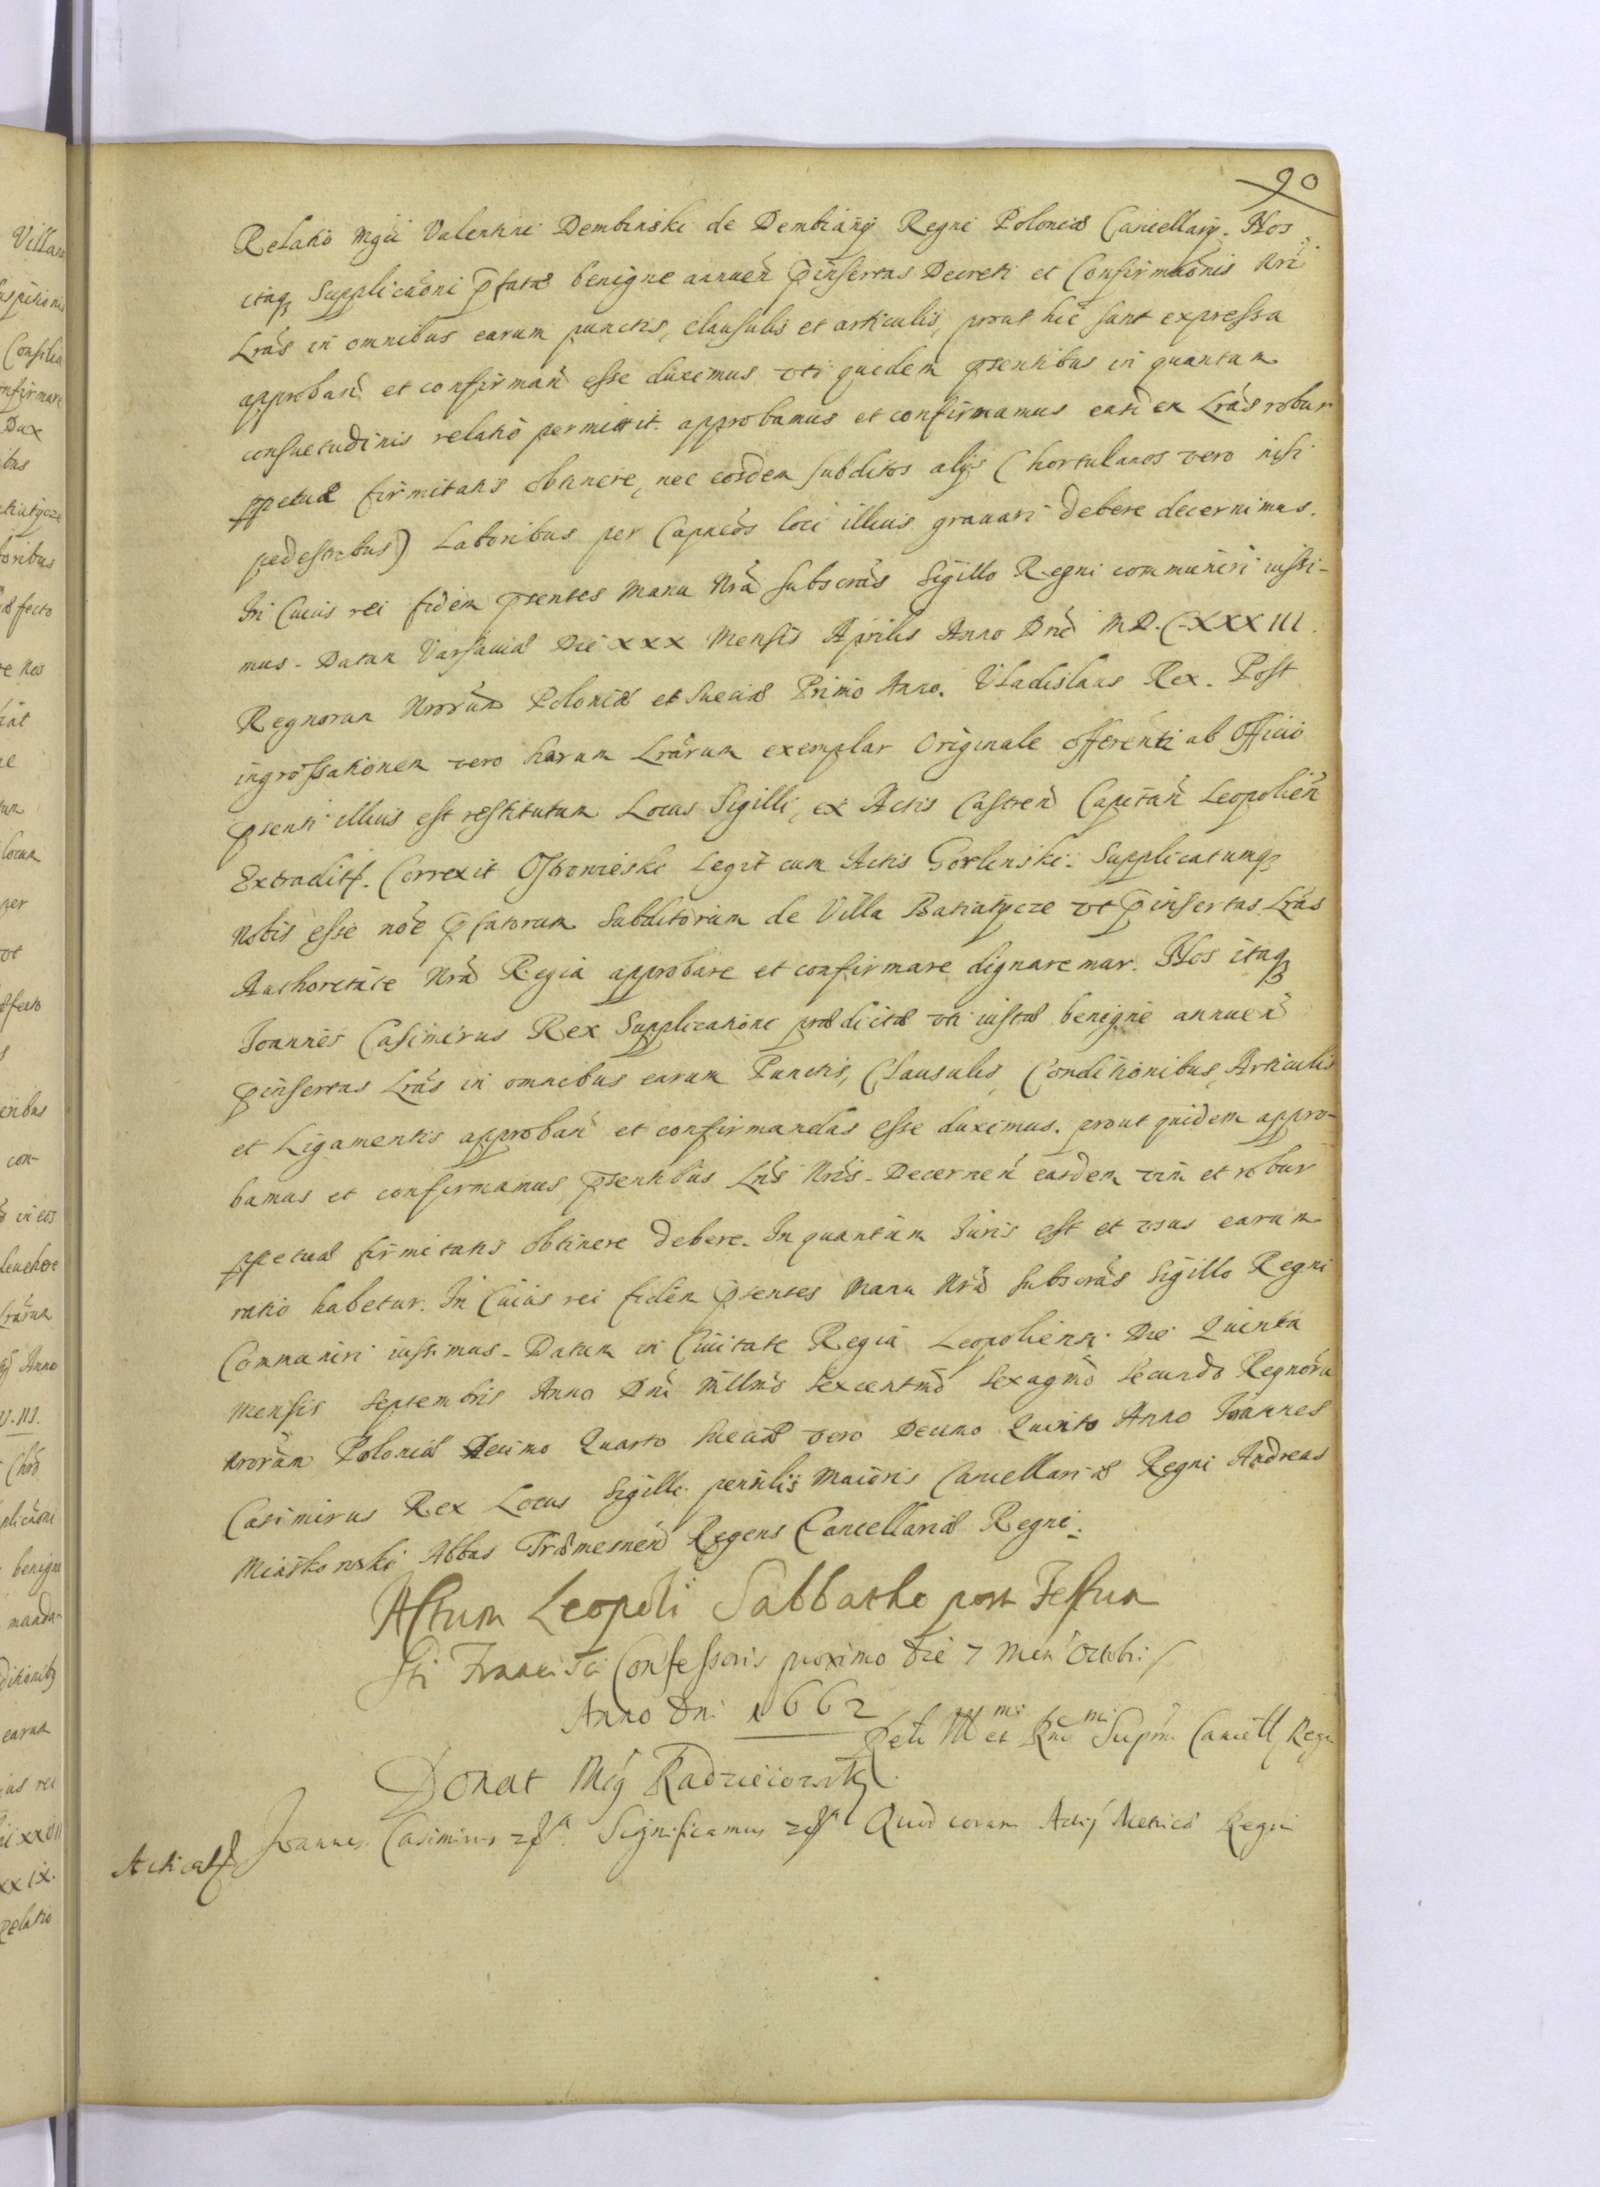 90
Relatio Mgci Valentini Dembinski de Dembiany Regni Poloniæ Cancellarÿ. Nos
itaq̃ Supplicaõni p̃fatæ benigne annueñ p̃insertas Decreti et Confirmaõnis Nri
Lrãs in omnibus earum punctis, clausulis et articulis, prout hic sunt expressa
approbañ et confirmañ esse duximus uti quidem p̃sentibus in quantum
consuetudinis relatio permittit. approbamus et confirmamus easdem Lrãs robur
ppetuæ firmitatis obtinere, nec eosdem subditos alÿs (hortulanos vero nisi
pedestribus) Laboribus per Capneos loci illius gravari debere decernimus.
In Cuius rei fidem p̃sentes Manu Nrã subscrãs Sigillo Regni communiri iussi-
mus. Datum Varsaviæ Die XXX Mensis Aprilis Anno Dni M.D.C.XXXIII.
Regnorum Nrorum Poloniæ et Sueciæ Primo Anno. Vladislaus Rex. Post
ingrossationem vero harum Lrãrum exemplar Originale offerenti ab Officio
p̃senti illius est restitutum Locus Sigilli, ex Actis Castreñ Capitañ Leopolieñ
Extradit. Correxit Ostrowieski Legit cum Actis Gorlinski. Supplicatumq̃
Nobis esse noẽ p̃fatorum Subditorum de Villa Batiatycze ut p̃insertas Lrãs
Authoritate Nrã Regia approbare et confirmare dignaremur. Nos itaq̃
Joannes Casimirus Rex Supplicationi prædictæ uti iustæ benigne annueñ
p̃insertas Lrãs in omnibus earum Punctis, Clausulis, Conditionibus, Articulis
et Ligamentis approbañ et confirmandas esse duximus. prout quidem appro-
bamus et confirmamus p̃sentibus Lris Nris. Decerneñ easdem vim et robur
ppetuæ firmitatis obtinere debere. In quantum Juris est et usus earum
ratio habetur. In Cuius rei fidem p̃sentes Manu Nrã subscrãs Sigillo Regni
Communiri iussimus. Datum in Civitate Regia Leopoliensi Die Quinta
Mensis Septembris Anno Dni Mllmo Sexcentmo Sexagmo Secundo Regnoru
Nrorum Poloniæ Decimo Quarto Sueciæ vero Decimo Quinto Anno Joannes
Casimirus Rex Locus Sigilli pensilis Maioris Cancellariæ Regni Andreas
Miaskowski Abbas Træmesneñ Regens Cancellariæ Regni.
Actum Leopoli Sabbatho post Festum
Sti Francisci Confessoris proximo Die 7 Men Octobri
Anno Dni 1662
Reli Illmi et Rmi Supmi Cancell Regn
Donat Mcg Radzieiowski
Joannes Casimirus Significamus Quod coram Actis Metrices Regni
Acticat